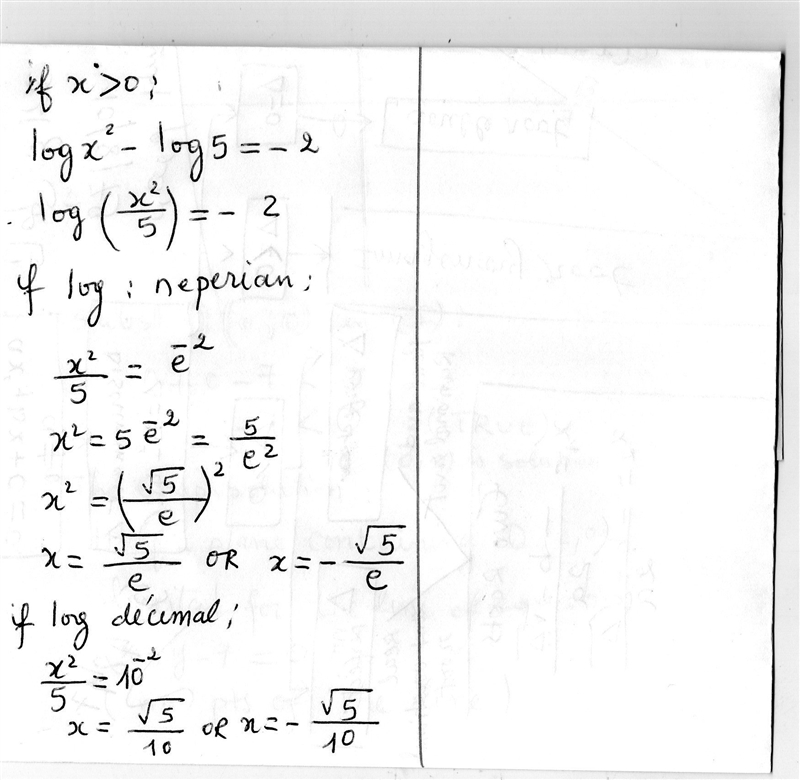 if x > 0 ;
log x² - log 5 = - 2
log (x²/5) = - 2
if log : neperian ;
x²/5 = e⁻²
x² = 5 e⁻² = 5/e²
x² = (√5/e)²
x = √5/e OR x = - √5/e
if log décimal ;
x²/5 = 10⁻²
x = √5/10 OR x = - √5/10